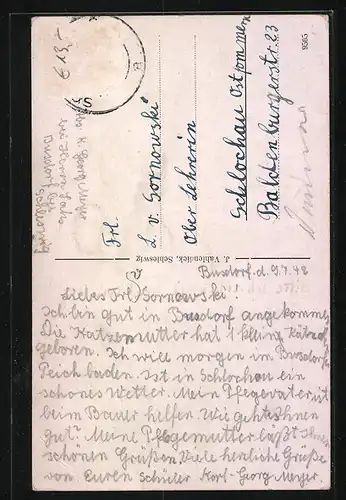 Busdorf. d. 9.7.42
Liebes Frl. Gornowski.
Ich bin gut in Busdorf angekommen
Die Katzenmutter hat 1 kleine
geboren. Ich will morgen im Busdorfer
Teich baden. Ist in Schlochau ein
schönes Wetter. Mein Pflegevater ist
beim Bauer helfen. Wie geht es Ihnen
gut? Meine Pflegemutter läßt Ihnen
schönen Grüßen. Viele herzliche Grüße
von Euren Schüler Karl-Georg Meyer.
Frl.
L. v. Gornowski
Ober Lehrerin
Schlochau Ostpommern
Baldenburgerstr. 23
J. Vahlendick, Schleswig
Abs. K. Georg Meyer
bei Herrn
Busdorf
Schleswig
€ 13,-
9565